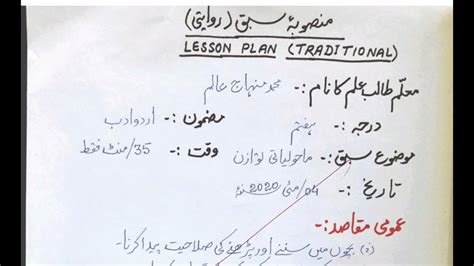 منصوبۂ سبق (روایتی)
LESSON PLAN (TRADITIONAL)
معلّم طالب علم کا نام :- محمد منہاج عالم
درجہ :- ہفتم مضمون :- اردو ادب
موضوع سبق :- ماحولیاتی توازن وقت :- 35/منٹ فقط
تاریخ :- 04/مئی 2020ء
عمومی مقاصد :-
(۱) بچوں میں سننے اور پڑھنے کی صلاحیت پیدا کرنا-